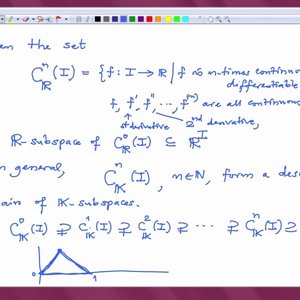 en the set
C^n_ℝ(I) = {f: I → ℝ | f is n-times continuou
differentiable
f, f', f'', ..., f^(n)) are all continuous
1st derivative 2nd derivative,
ℝ-subspace of C^0_ℝ(I) ⊆ ℝ^I
n general, C^n_𝕂(I), n∈ℕ, form a des
ain of 𝕂-subspaces.
C^0_𝕂(I) ⊋ C^1_𝕂(I) ⊋ C^2_𝕂(I) ⊋ ... ⊋ C^n_𝕂(I) ⊇
0 1